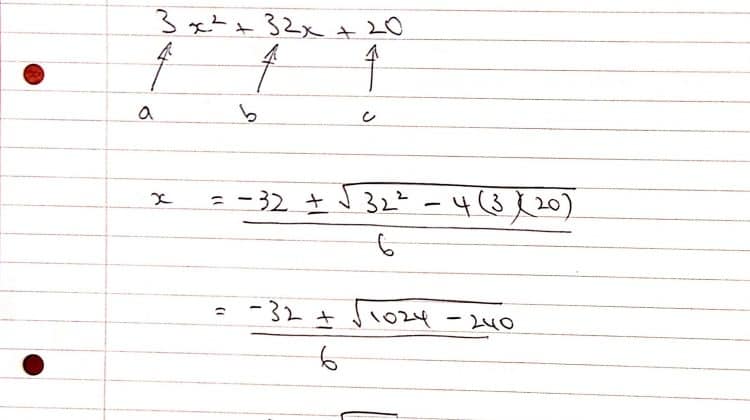 3x² + 32x + 20
a b c
x = -32 ± √32² - 4(3)(20)
6
= -32 ± √1024 - 240
6